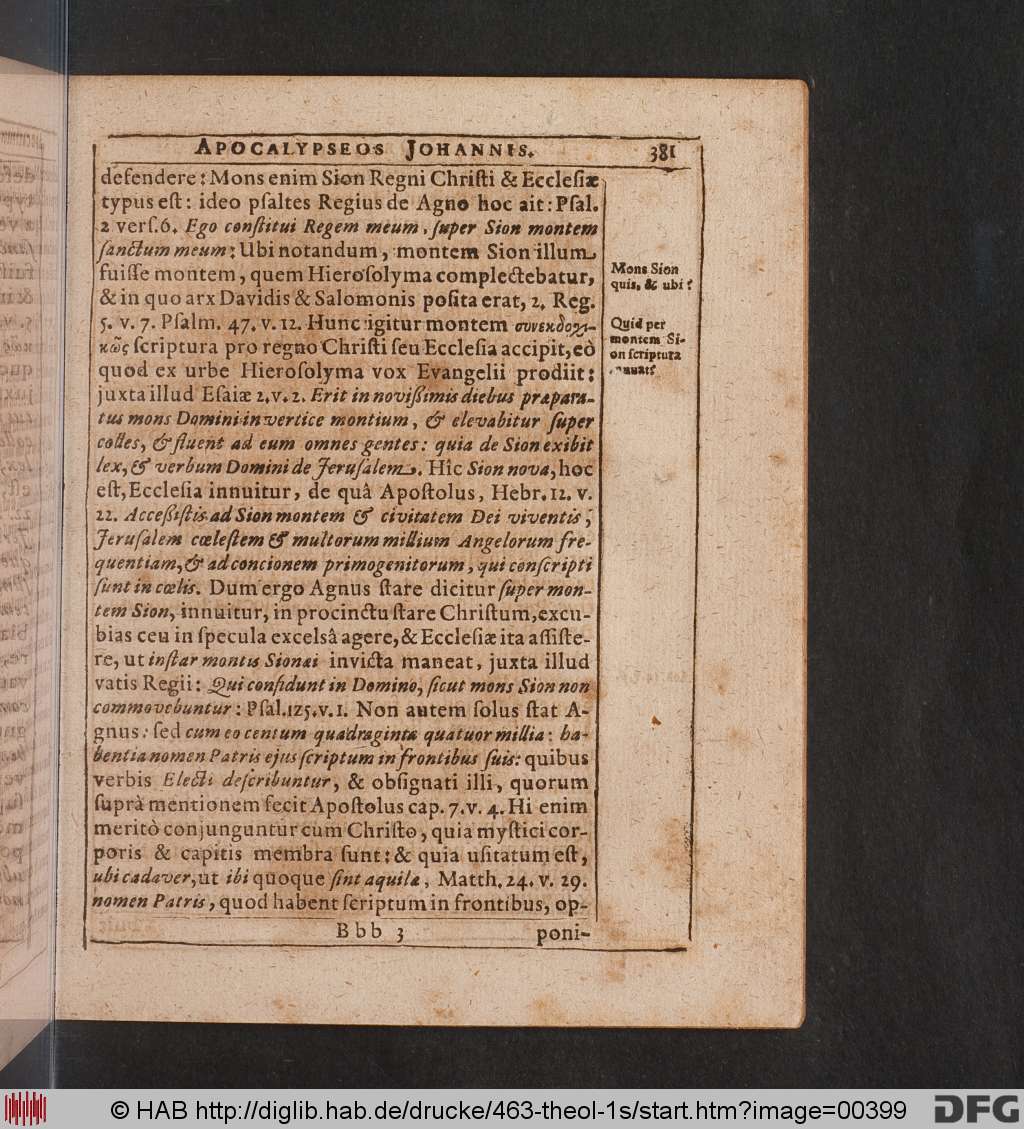 APOCALYPSEOS JOHANNIS. 381
defendere: Mons enim Sion Regni Chriſti & Eccleſiæ
typus eſt: ideo pſaltes Regius de Agno hoc ait: Pſal.
2 verſ. 6. Ego conſtitui Regem meum, ſuper Sion montem
ſanctum meum: Ubi notandum, montem Sion illum
fuiſſe montem, quem Hieroſolyma complectebatur,
& in quo arx Davidis & Salomonis poſita erat, 2. Reg.
5. v. 7. Pſalm. 47. v. 12. Hunc igitur montem συνεκδοχι-
κῶς ſcriptura pro regno Chriſti ſeu Eccleſia accipit, eò
quod ex urbe Hieroſolyma vox Evangelii prodiit:
juxta illud Eſaiæ 2. v. 2. Erit in novißimis diebus præpara-
tus mons Domini in vertice montium, & elevabitur ſuper
colles, & fluent ad eum omnes gentes: quia de Sion exibit
lex, & verbum Domini de Jeruſalem. Hîc Sion nova, hoc
eſt, Eccleſia innuitur, de quâ Apoſtolus, Hebr. 12. v.
22. Acceßiſtis ad Sion montem & civitatem Dei viventis,
Jeruſalem cœleſtem & multorum millium Angelorum fre-
quentiam, & ad concionem primogenitorum, qui conſcripti
ſunt in cœlis. Dum ergo Agnus ſtare dicitur ſuper mon-
tem Sion, innuitur, in procinctu ſtare Chriſtum, excu-
bias ceu in ſpecula excelsâ agere, & Eccleſiæ ita aſſiſte-
re, ut inſtar montis Sionai invicta maneat, juxta illud
vatis Regii: Qui confidunt in Domino, ſicut mons Sion non
commovebuntur: Pſal. 125. v. 1. Non autem ſolus ſtat A-
gnus: ſed cum eo centum quadraginta quatuor millia: ha-
bentia nomen Patris ejus ſcriptum in frontibus ſuis: quibus
verbis Electi deſcribuntur, & obſignati illi, quorum
ſuprà mentionem fecit Apoſtolus cap. 7. v. 4. Hi enim
meritò conjunguntur cum Chriſto, quia myſtici cor-
poris & capitis membra ſunt: & quia uſitatum eſt,
ubi cadaver, ut ibi quoque ſint aquilæ, Matth. 24. v. 29.
nomen Patris, quod habent ſcriptum in frontibus, op-
Bbb 3 poni-
Mons Sion
quis, & ubi?
Quid per
montem Si-
on ſcriptura
© HAB http://diglib.hab.de/drucke/463-theol-1s/start.htm?image=00399
DFG